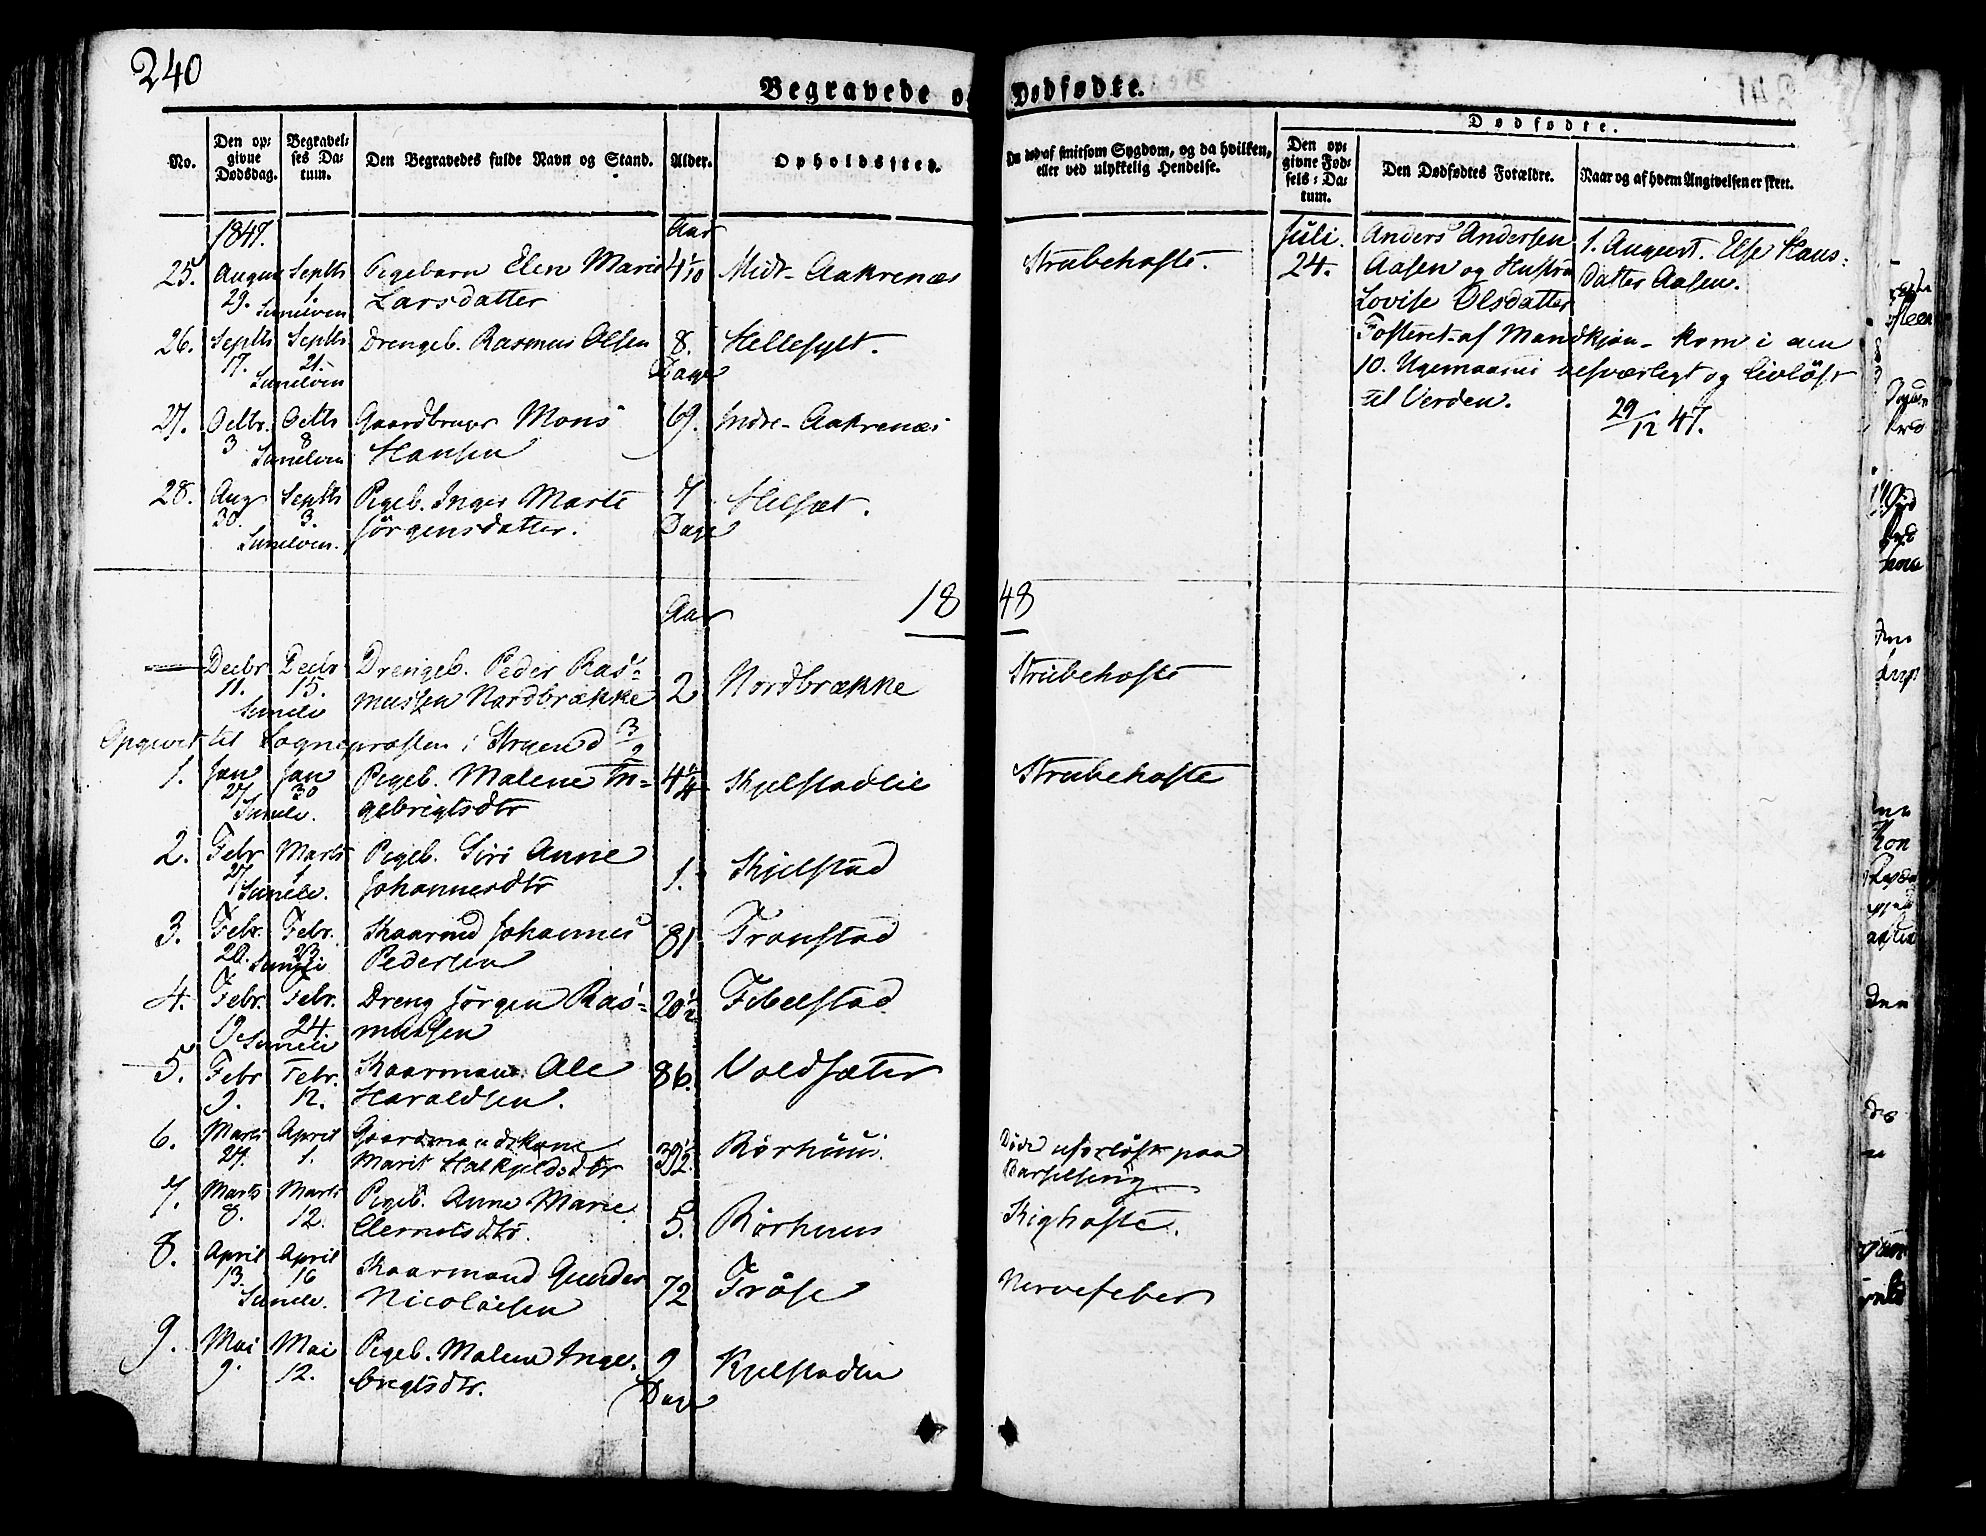 240
Begravede og Dødfødte.
Dødfødte.
No.
Den op-
givne
Dødsdag.
Begravel-
ses Da-
tum.
Den Begravedes fulde Navn og Stand.
Alder.
Opholdssted.
eller ved ulykkelig Hendelse.
Den op-
givne Fød-
sels-Da-
tum.
Den Dødfødtes Forældre.
Naar og af hvem Angivelsen er skeet.
1847.
Aar
25. August Septbr Pigebarn Elen Marie 4 1/10 Midt-Aakrenæs Strubehoste.
29. 1. Sunelven Larsdatter
26. Septbr Septbr Drengeb. Rasmus Olsen 8. Hellesylt.
17. 21. Sunelven Dage
27. Octbr. Octbr Gaardbruger Mons 69. Indre-Aakrenæs
3 8 Sunelven Hansen
28. Aug Septbr Pigeb. Inger Marte 7 Helsæt.
30. 3. Sunelven. Jørgensdatter. Dage
Juli. Anders Andersen 1. August. Else Hans-
24. Aasen og Hustru Datter Aasen.
Lovise Olsdatter
Fosteret af Mandkjøn - kom i den
10. Ugemaaned besværligt og livløst
til Verden. 29/12 47.
1848
Aar
Decbr Decbr Drengeb. Peder Ras- 2 Nordbrække Strubehoste
11. 15. Sunelv mussen Nordbrække
Opgivet til Sognepræsten i Stryen d 3/2
1. Jan Jan Pigeb. Malene In- 4 1/4 Skjelstadlie Strubehoste
27 30 Sunelv. gebrigtsdtr
2. Febr Marts Pigeb. Siri Anne 1. Skjelstad
27 1 Sunelv. Johannesdtr
3. Febr. Febr. Kaarmd Johannes 81 Tronstad
20. 23 Sunelv Pedersen
4. Febr. Febr. Dreng Jørgen Ras- 20 1/2 Fibelstad
19 24. Sunelv mussen
5. Febr Febr. Kaarmand. Ole 86. Voldsæter
9. 12. Haraldsen.
6. Marts April Gaardmandskone 39 1/2. Rørhuus. Døde uforløst paa
27. 1. Marit Halkjeldsdtr Barselseng
7. Marts Marts Pigeb. Anne Marie 5. Rørhuus Kighoste.
8. 12. Clemetsdtr.
8. April April Kaarmand Gunder 72 Trøse Nervefeber
13. 16 Sunelv. Nicolaisen
9. Mai Mai Pigeb. Malene Inge- 9 Kjelstadlie
9. 12. brigtsdtr. Dage